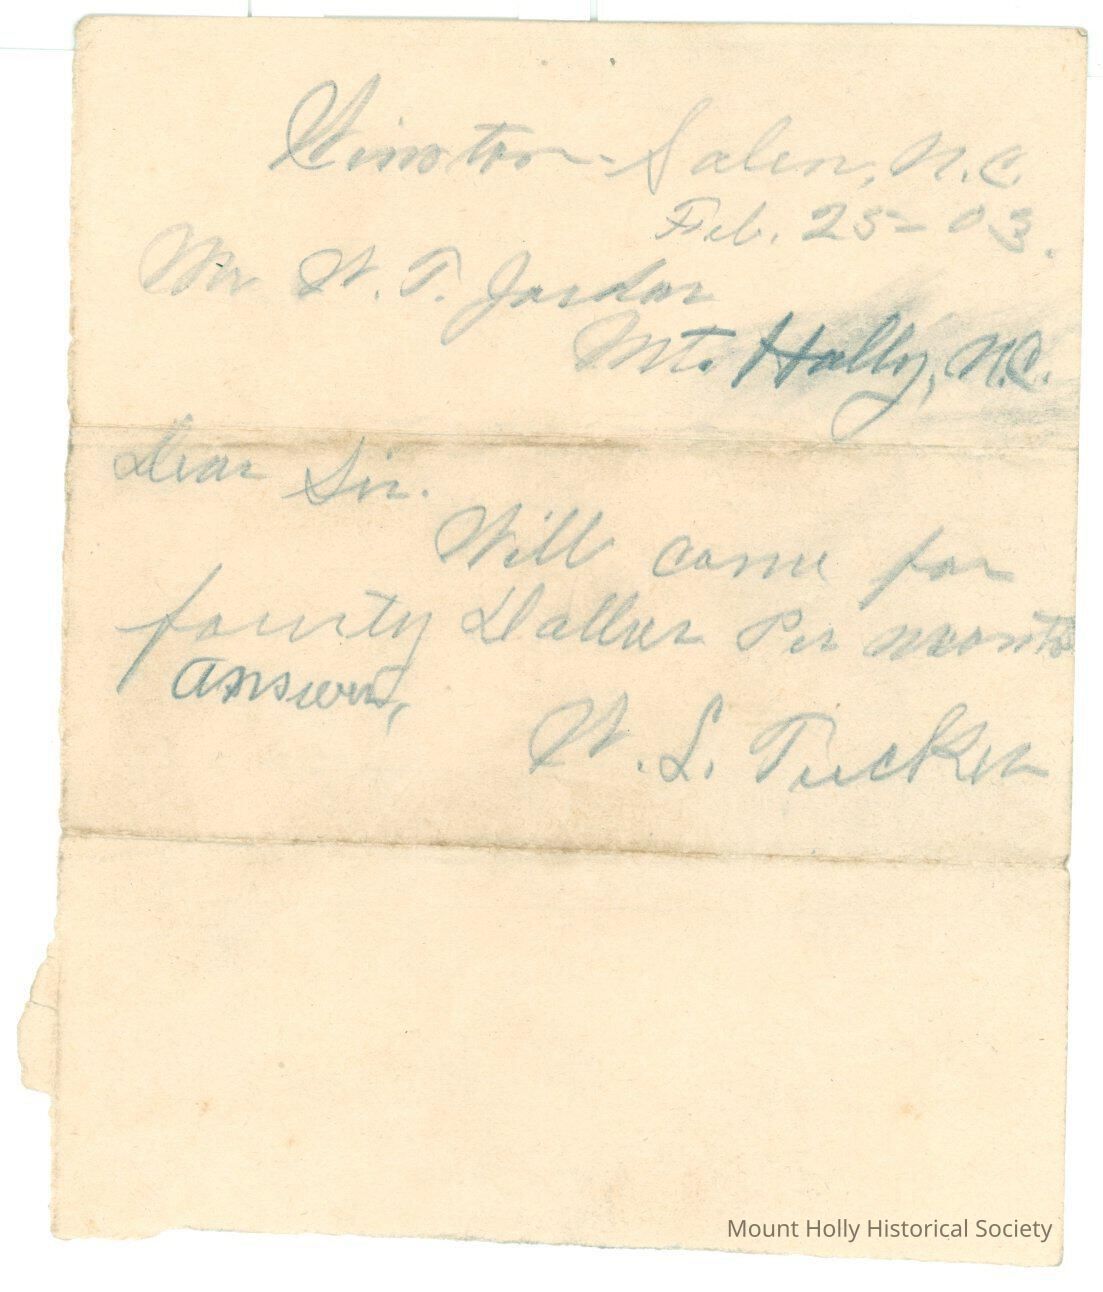 Winston-Salem, N.C.
Feb. 25-03.
Mr W. T. Jordan
Mt. Holly, N.C.
Dear Sir.
Will come for
fourty Dollars Per month
answer,
W. L. Tucker
Mount Holly Historical Society